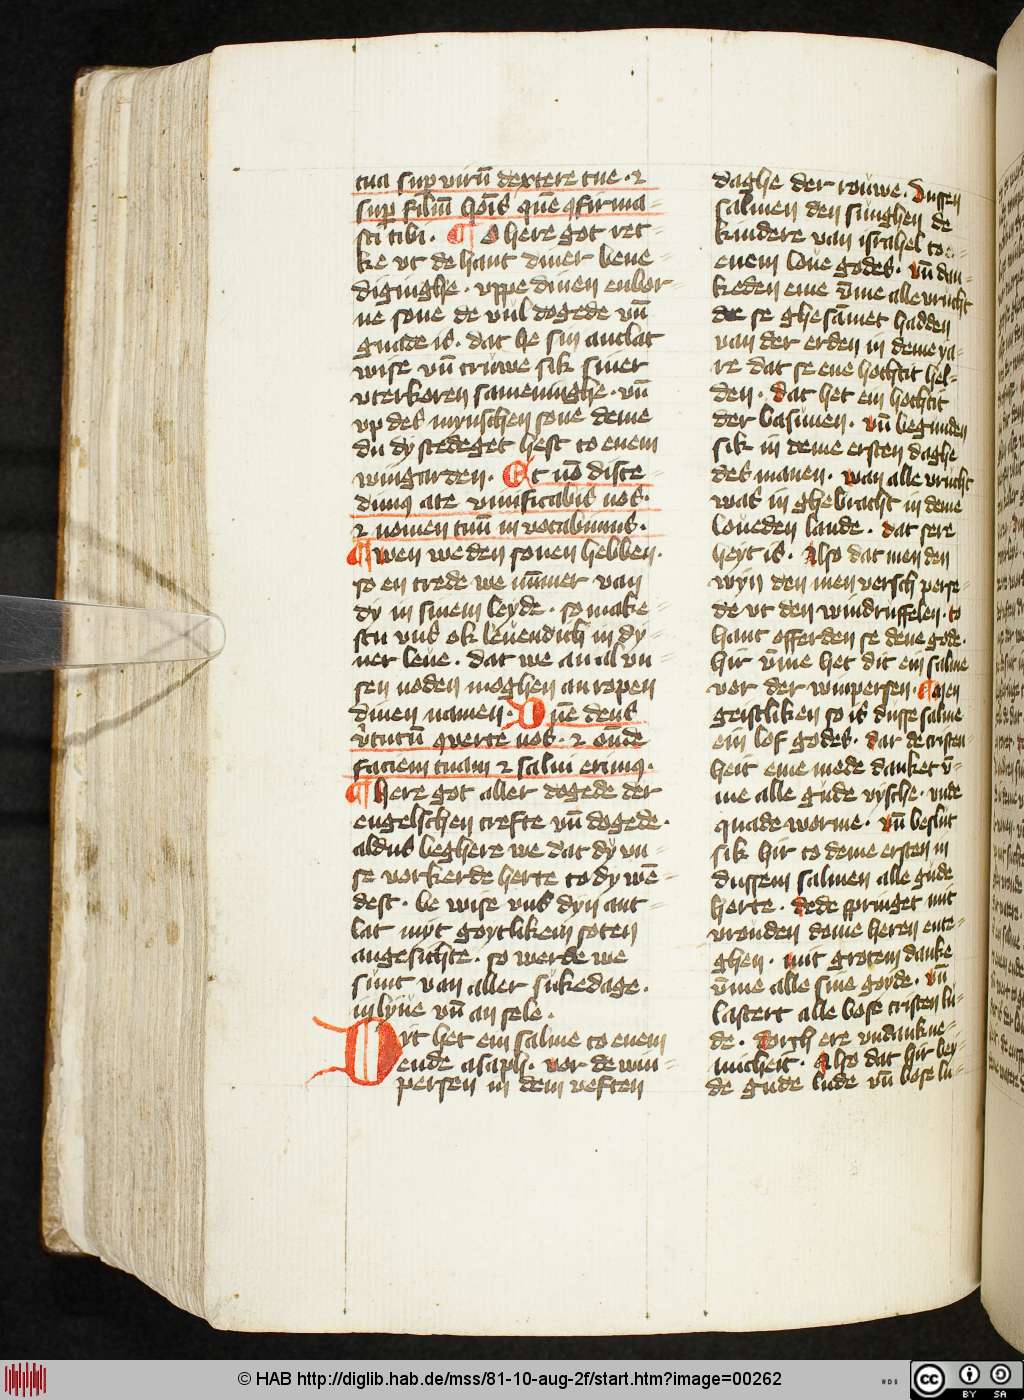 tua sup virū dextere tue · ⁊
sup filiū hoīs quē ꝯfirma-
sti tibi · ¶ O here got ret-
ke vt de hant diner bene-
diginghe · vppe dinen enbor-
ne sone de vul dogede vn̄
gnade is · dat he sin antlat
wise vn̄ truwe sik siner
vterkoren sameninghe · vn̄
vp des mynschen sone deme
du dy stedeget hest to enem
wingarden · Et nō disce-
dimꝯ a te viuificabis nos ·
⁊ nomen tuū in vocabimus ·
¶ wen we den sonen hebben ·
so en trede we nūmer van
dy in sinem leyde · so make-
stu vns ok leuendich in dy-
ner leue · dat we an al vn-
sen noden moghen an ropen
dinen namen · Dn̄e deus
v̄tutū ꝯuerte nos · ⁊ on̄de
faciem tuam ⁊ salui erimꝯ ·
¶ here got aller dogede der
engelschen crefte vn̄ dogede ·
aldus beghere we dat dy vn-
se vorkerde herte to dy wē-
dest · be wise vns dyn ant-
lat myt goytlikem soten
angesichte · so werde we
sunt van aller sukedage ·
in lyue vn̄ an sele ·
Dyt het ein salme to enem
ende asaph · vor de win-
persen in dem veften
daghe der rouwe · Dussen
salmen den sunghen de
kindere van israhel to e-
enem loue godes · vn̄ dan-
keden eme v̄me alle vrucht
de se ghesāmet hadden
van der erden in deme ya-
re dat se ene hochtit hel-
den · dat het ein hochtit
der basunen · vn̄ begunden
sik in deme ersten daghe
des manen · wan alle vrucht
was in ghebracht in deme
loueden lande · dat sere
heyt is · Also dat men den
wyn den men versch perse-
de vt den windruffelen · to
hant offerden se deme gode ·
hir v̄me het dit ein salme
vor der winpersen · ¶ Men
geistliken so is dusse salme
ein lof godes · dar de cristen-
heit eme mede danket v̄-
me alle gude vysche · vnde
quade worme · vn̄ beslut
sik hir to deme ersten in
dussem salmen alle gude
herte · dede springet mit
vrouden deme heren ente-
ghen · mit grotem danke
v̄me alle sine goyde · vn̄
lastert alle bose cristen lu-
de · dorch ere vndankne-
micheit · Also dat hir bey-
de gude lude vn̄ bose lu-
© HAB http://diglib.hab.de/mss/81-10-aug-2f/start.htm?image=00262
cc BY SA